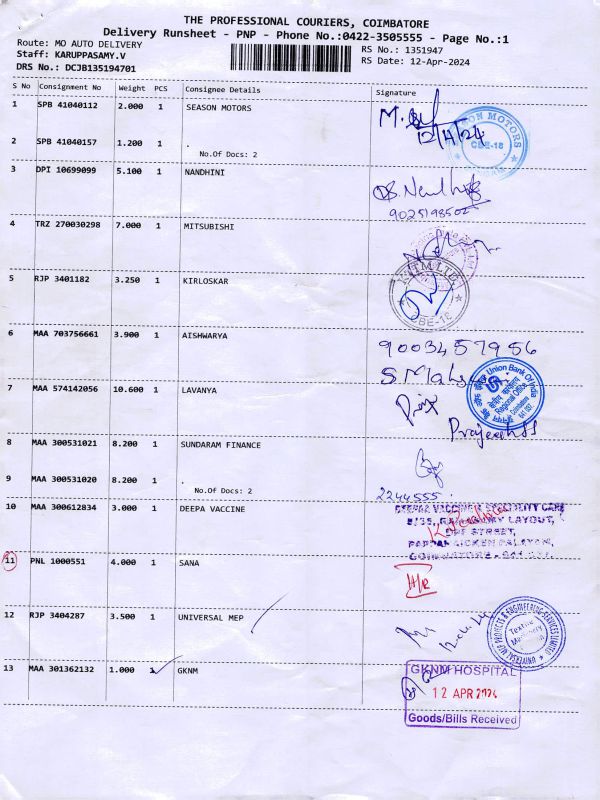 THE PROFESSIONAL COURIERS, COIMBATORE
Delivery Runsheet - PNP - Phone No.:0422-3505555 - Page No.:1
Route: MO AUTO DELIVERY
RS No.: 1351947
Staff: KARUPPASAMY.V
RS Date: 12-Apr-2024
DRS No.: DCJB135194701
S No Consignment No Weight PCS Consignee Details Signature
1 SPB 41040112 2.000 1 SEASON MOTORS
12/4/24
2 SPB 41040157 1.200 1 .
No.Of Docs: 2
3 DPI 10699099 5.100 1 NANDHINI
4 TRZ 270030298 7.000 1 MITSUBISHI
5 RJP 3401182 3.250 1 KIRLOSKAR
6 MAA 703756661 3.900 1 AISHWARYA
9003457956
7 MAA 574142056 10.600 1 LAVANYA
Union Bank Of India
Regional Office
8 MAA 300531021 8.200 1 SUNDARAM FINANCE
9 MAA 300531020 8.200 1 .
No.Of Docs: 2
2244555.
10 MAA 300612834 3.000 1 DEEPA VACCINE
11 PNL 1000551 4.000 1 SANA
12 RJP 3404287 3.500 1 UNIVERSAL MEP
UNIVERSAL MEP PROJECTS & ENGINEERING SERVICES LIMITED
13 MAA 301362132 1.000 1 GKNM
GKNM HOSPITAL
12 APR 2024
Goods/Bills Received